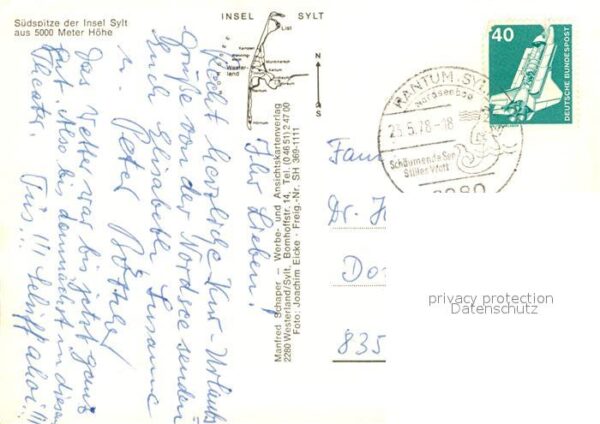 Südspitze der Insel Sylt
aus 5000 Meter Höhe
INSEL SYLT
List
Kampen
Wester-
land
N
S
Manfred Schaper – Werbe- und Ansichtskartenverlag
2280 Westerland/Sylt, Bomhoffstr. 14, Tel. (0 46 51) 2 47 00
Foto: Joachim Eicke · Freig.-Nr. SH 369-1111
Ihr Lieben!
Recht herzliche Kur-Urlaubs
Grüße von der Nordsee senden
Euch Elisabeth Susanne
u. Peter
Das Wetter war bis jetzt ganz
gut. Also bis demnächst in diesem
Theater.
Tüs!!! Schiff ahoi!!!
40
DEUTSCHE BUNDESPOST
RANTUM, SYLT
Nordseebad
23.5.78-18
Schäumende See
Stilles Watt
2280
Fam
Dr. H
Do
835
privacy protection
Datenschutz